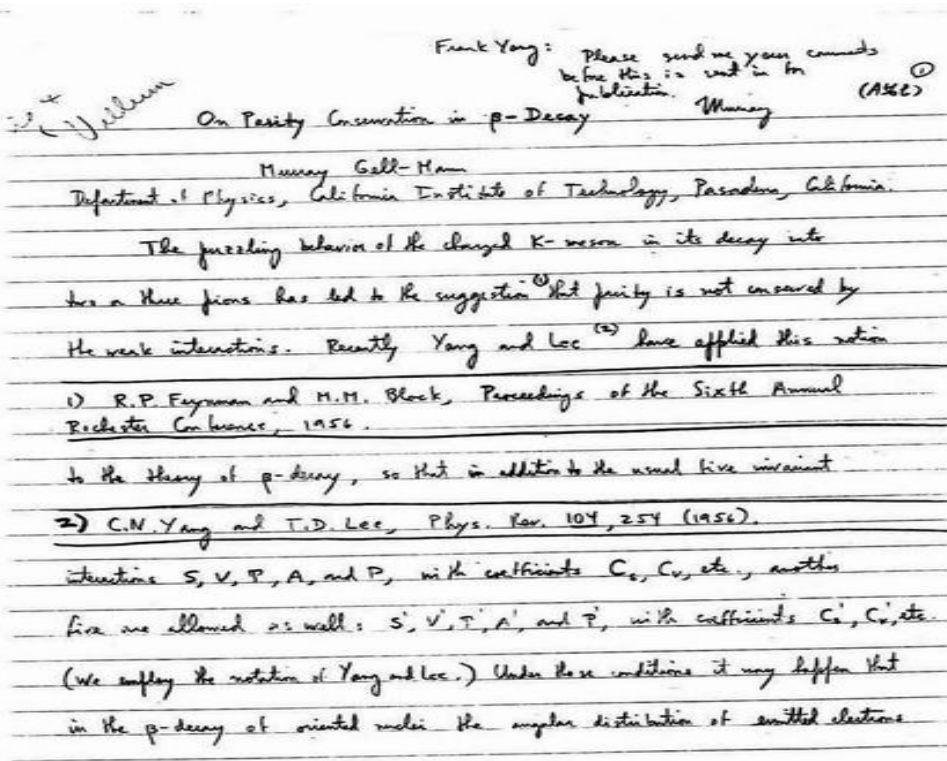 Frank Yang: Please send me your comments
before this is sent in for
publication.
Murray
(1)
On Parity Conservation in β-Decay
Murray Gell-Mann
Department of Physics, California Institute of Technology, Pasadena, California.
The puzzling behavior of the charged K-meson in its decay into
two or three pions has led to the suggestion (1) that parity is not conserved by
the weak interactions. Recently Yang and Lee (2) have applied this notion
1) R.P. Feynman and M.M. Block, Proceedings of the Sixth Annual
Rochester Conference, 1956.
to the theory of β-decay, so that in addition to the usual five invariant
2) C.N. Yang and T.D. Lee, Phys. Rev. 104, 254 (1956).
interactions S, V, T, A, and P, with coefficients Cs, Cv, etc., another
five are allowed as well: S', V', T', A', and P', with coefficients Cs', Cv', etc.
(We employ the notation of Yang and Lee.) Under these conditions it may happen that
in the β-decay of oriented nuclei the angular distribution of emitted electrons